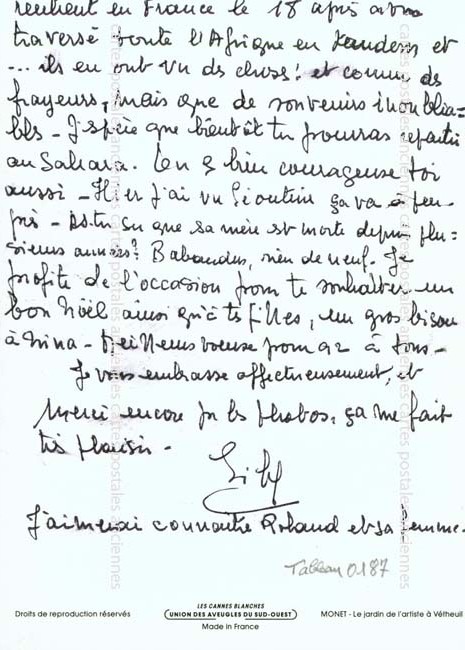 rentrent en France le 18 après avoir
traversé toute l'Afrique en tandem et
... ils en ont vu des choses! et connu des
frayeurs, mais que de souvenirs inoublia=
bles - J'espère que bientôt tu pourras repartir
au Sahara. bien courageuse toi
aussi - Hier j'ai vu ça va à peu
près - As-tu su que sa mère est morte depuis plu=
sieurs années? rien de neuf. Je
profite de l'occasion pour te souhaiter un
bon Noël ainsi qu'à tes filles, un gros bisou
à Nina - Meilleurs voeux pour 92 à tous -
Je vous embrasse affectueusement, et
Merci encore pr les photos, ça me fait
très plaisir -
J'aimerai connaître Roland et sa femme.
Tableau 0187
cartes postales anciennes
LES CANNES BLANCHES
Droits de reproduction réservés
UNION DES AVEUGLES DU SUD-OUEST
MONET - Le jardin de l'artiste à Vétheuil
Made in France